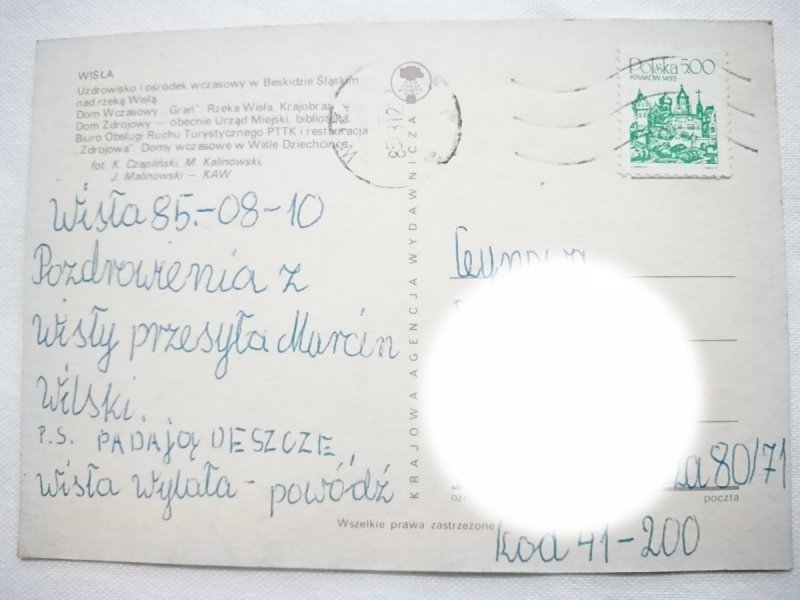 WISŁA
Uzdrowisko i ośrodek wczasowy w Beskidzie Śląskim
nad rzeką Wisłą
Dom Wczasowy „Grań”. Rzeka Wisła. Krajobraz
Dom Zdrojowy — obecnie Urząd Miejski, biblioteka,
Biuro Obsługi Ruchu Turystycznego PTTK i restauracja
„Zdrojowa”. Domy wczasowe w Wiśle Dziechcince
fot. K. Czapliński, M. Kalinowski,
J. Malinowski — KAW
Polska 5,00
KRAKÓW 1493
Wisła 85.-08-10
Pozdrowienia z
Wisły przesyła Marcin
Wilski.
P.S. PADAJĄ DESZCZE,
wisła wylała - powódź
KRAJOWA AGENCJA WYDAWNICZA
80/71
poczta
Wszelkie prawa zastrzeżone
kod 41-200